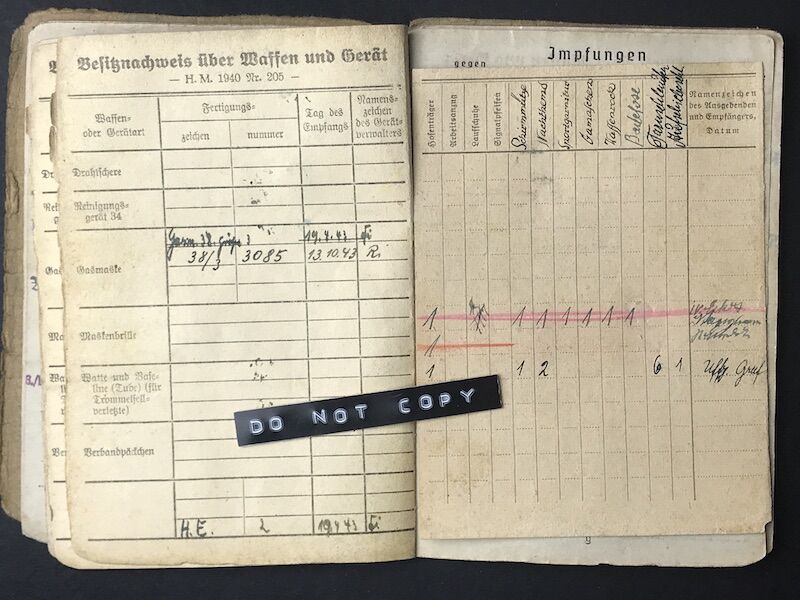 Besitznachweis über Waffen und Gerät
— H. M. 1940 Nr. 205 —
Waffen-
oder Gerätart
Fertigungs-
zeichen
nummer
Tag des
Empfangs
Namens-
zeichen
des Gerät-
verwalters
Drahtschere
Reinigungs-
gerät 34
Gasmaske
19.4.43
38/3 3085 13.10.43 Ri
Maskenbrille
Watte und Vase-
line (Tube) (für
Trommelfell-
verletzte)
Verbandpäckchen
H.E. 2 19.4.43
DO NOT COPY
Impfungen
gegen
Hosenträger
Arbeitsanzug
Laufschuhe
Signalpfeifen
Nachthemd
Sportgarnitur
Gamaschen
Waffenrock
Badehose
Namenzeichen
des Ausgebenden
und Empfängers,
Datum
1 1 1 1 1 1 1
1
1 1 2 6 1 Uffz. Graf
9